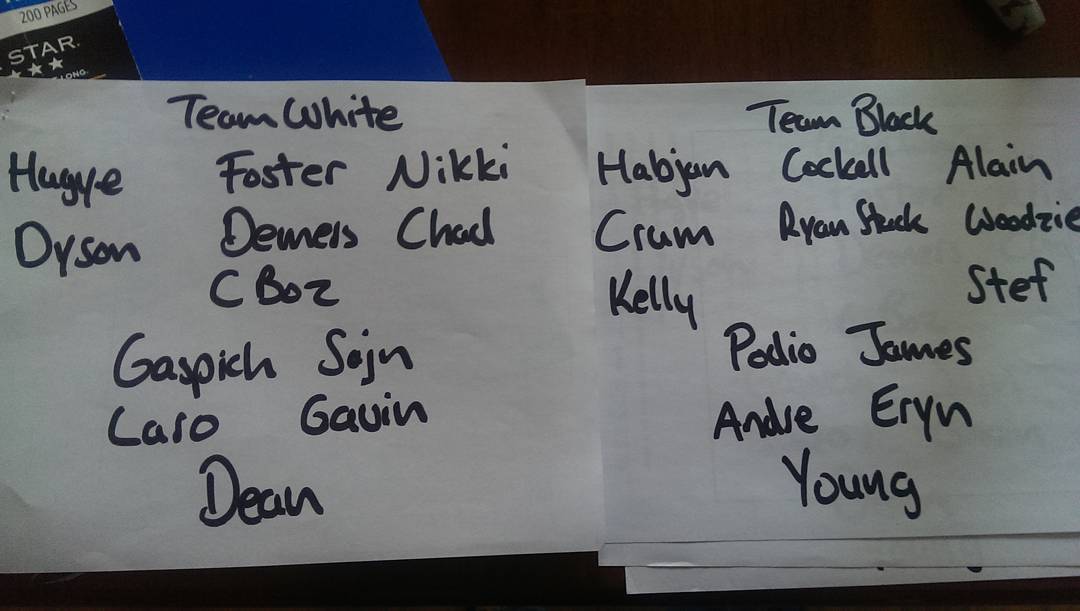 200 PAGES
STAR.
LONG.
Team White
Hugye Foster Nikki
Dyson Demers Chad
C Boz
Gaspich Sojn
Caro Gavin
Dean
Team Black
Habjan Cockell Alain
Cram Ryan Stuck Woodzie
Kelly Stef
Podio James
Andre Eryn
Young